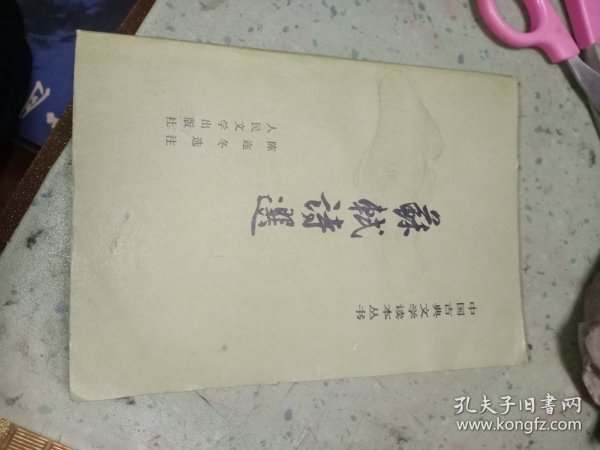 中国古典文学读本丛书
蘇軾詩選
陈迩冬选注
人民文学出版社
孔夫子旧书网
www.kongfz.com